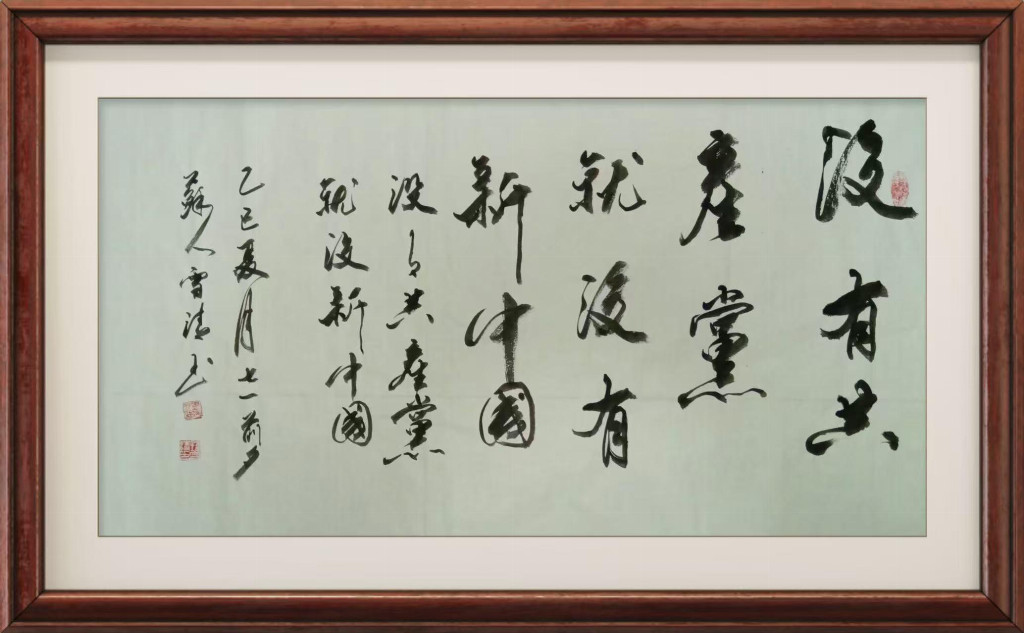 没有共
產黨
就没有
新中國
没有共產黨
就没新中國
乙巳夏月七一前夕
蘇人雪清